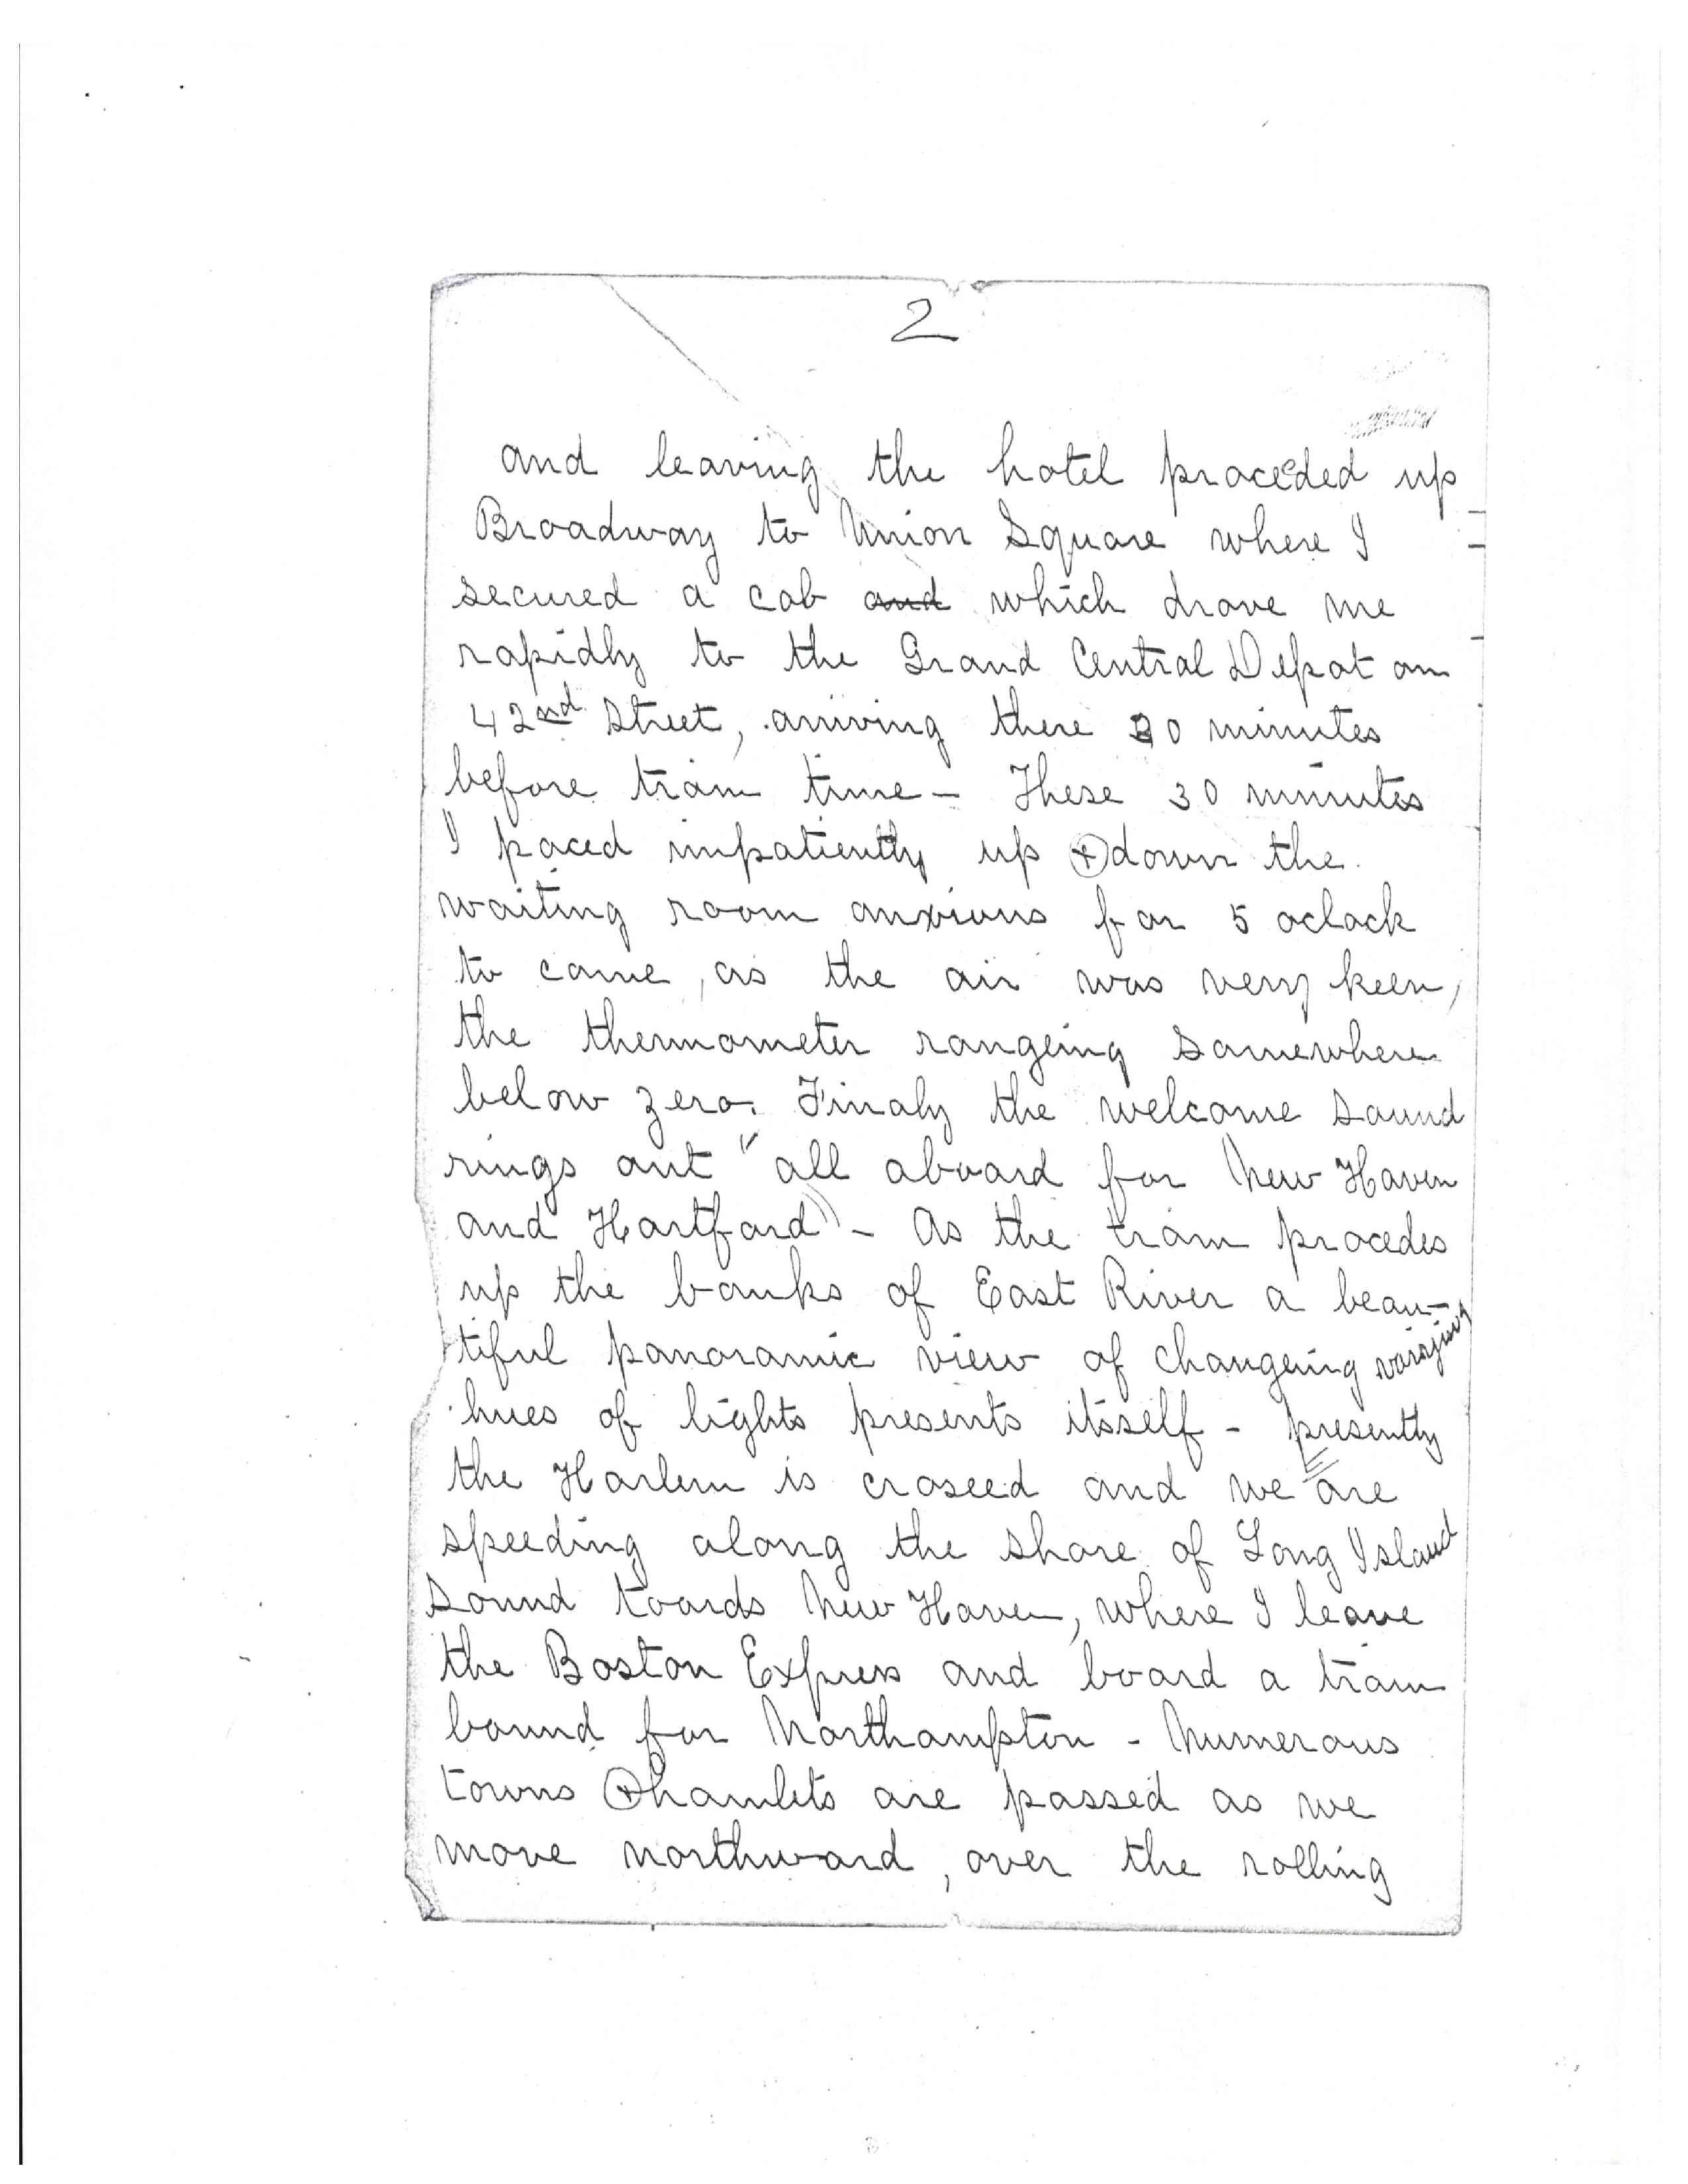 2
and leaving the hotel proceeded up
Broadway to Union Square where I
secured a cab and which drove me
rapidly to the Grand Central Depot on
42nd Street, arriving there 30 minutes
before train time - These 30 minutes
I paced impatiently up & down the
waiting room anxious for 5 oclock
to come, as the air was very keen,
the thermometer rangeing somewhere
below zero. Finaly the welcome sound
rings out "all aboard for New Haven
and Hartford" - As the train procedes
up the banks of East River a beau-
tiful panoramic view of changeing varying
hues of lights presents itsself - presently
the Harlem is crossed and we are
speeding along the shore of Long Island
Sound toards New Haven, where I leave
the Boston Express and board a train
bound for Northampton - Numerous
towns & hamlets are passed as we
move northward, over the rolling